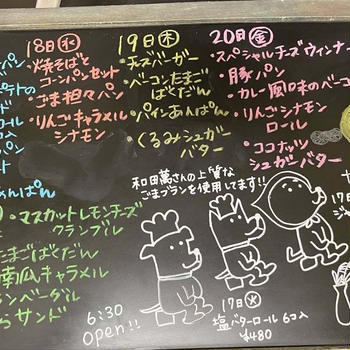 18日(水)
・焼そばと
コーンパンセット
・ごま担々パン
・りんごキャラメル
シナモン
19日(木)
・チーズバーガー
・ベーコンたまご
ばくだん
・パインあんぱん
・くるみシュガー
バター
20日(金)
・スペシャルチーズウィンナー
・豚パン
・カレー風味のベーコ
・りんごシナモン
ロール
・ココナッツ
シュガーバター
あんぱん
・マスカットレモンチーズ
クランブル
たまごばくだん
南瓜キャラメル
ンベーグル
サンド
和田萬さんの上質な
ごまプランを使用してます!!
6:30
open!!
17日(火)
塩バターロール 6コ入
¥480
17日